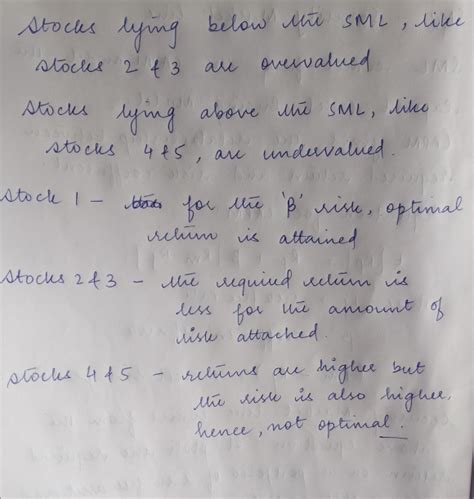 Stocks lying below the SML, like
stocks 2 & 3 are overvalued
Stocks lying above the SML, like
stocks 4 & 5, are undervalued.
Stock 1 - for the 'β' risk, optimal
return is attained
Stocks 2 & 3 - the required return is
less for the amount of
risk attached.
Stocks 4 & 5 - returns are higher but
the risk is also higher,
hence, not optimal.